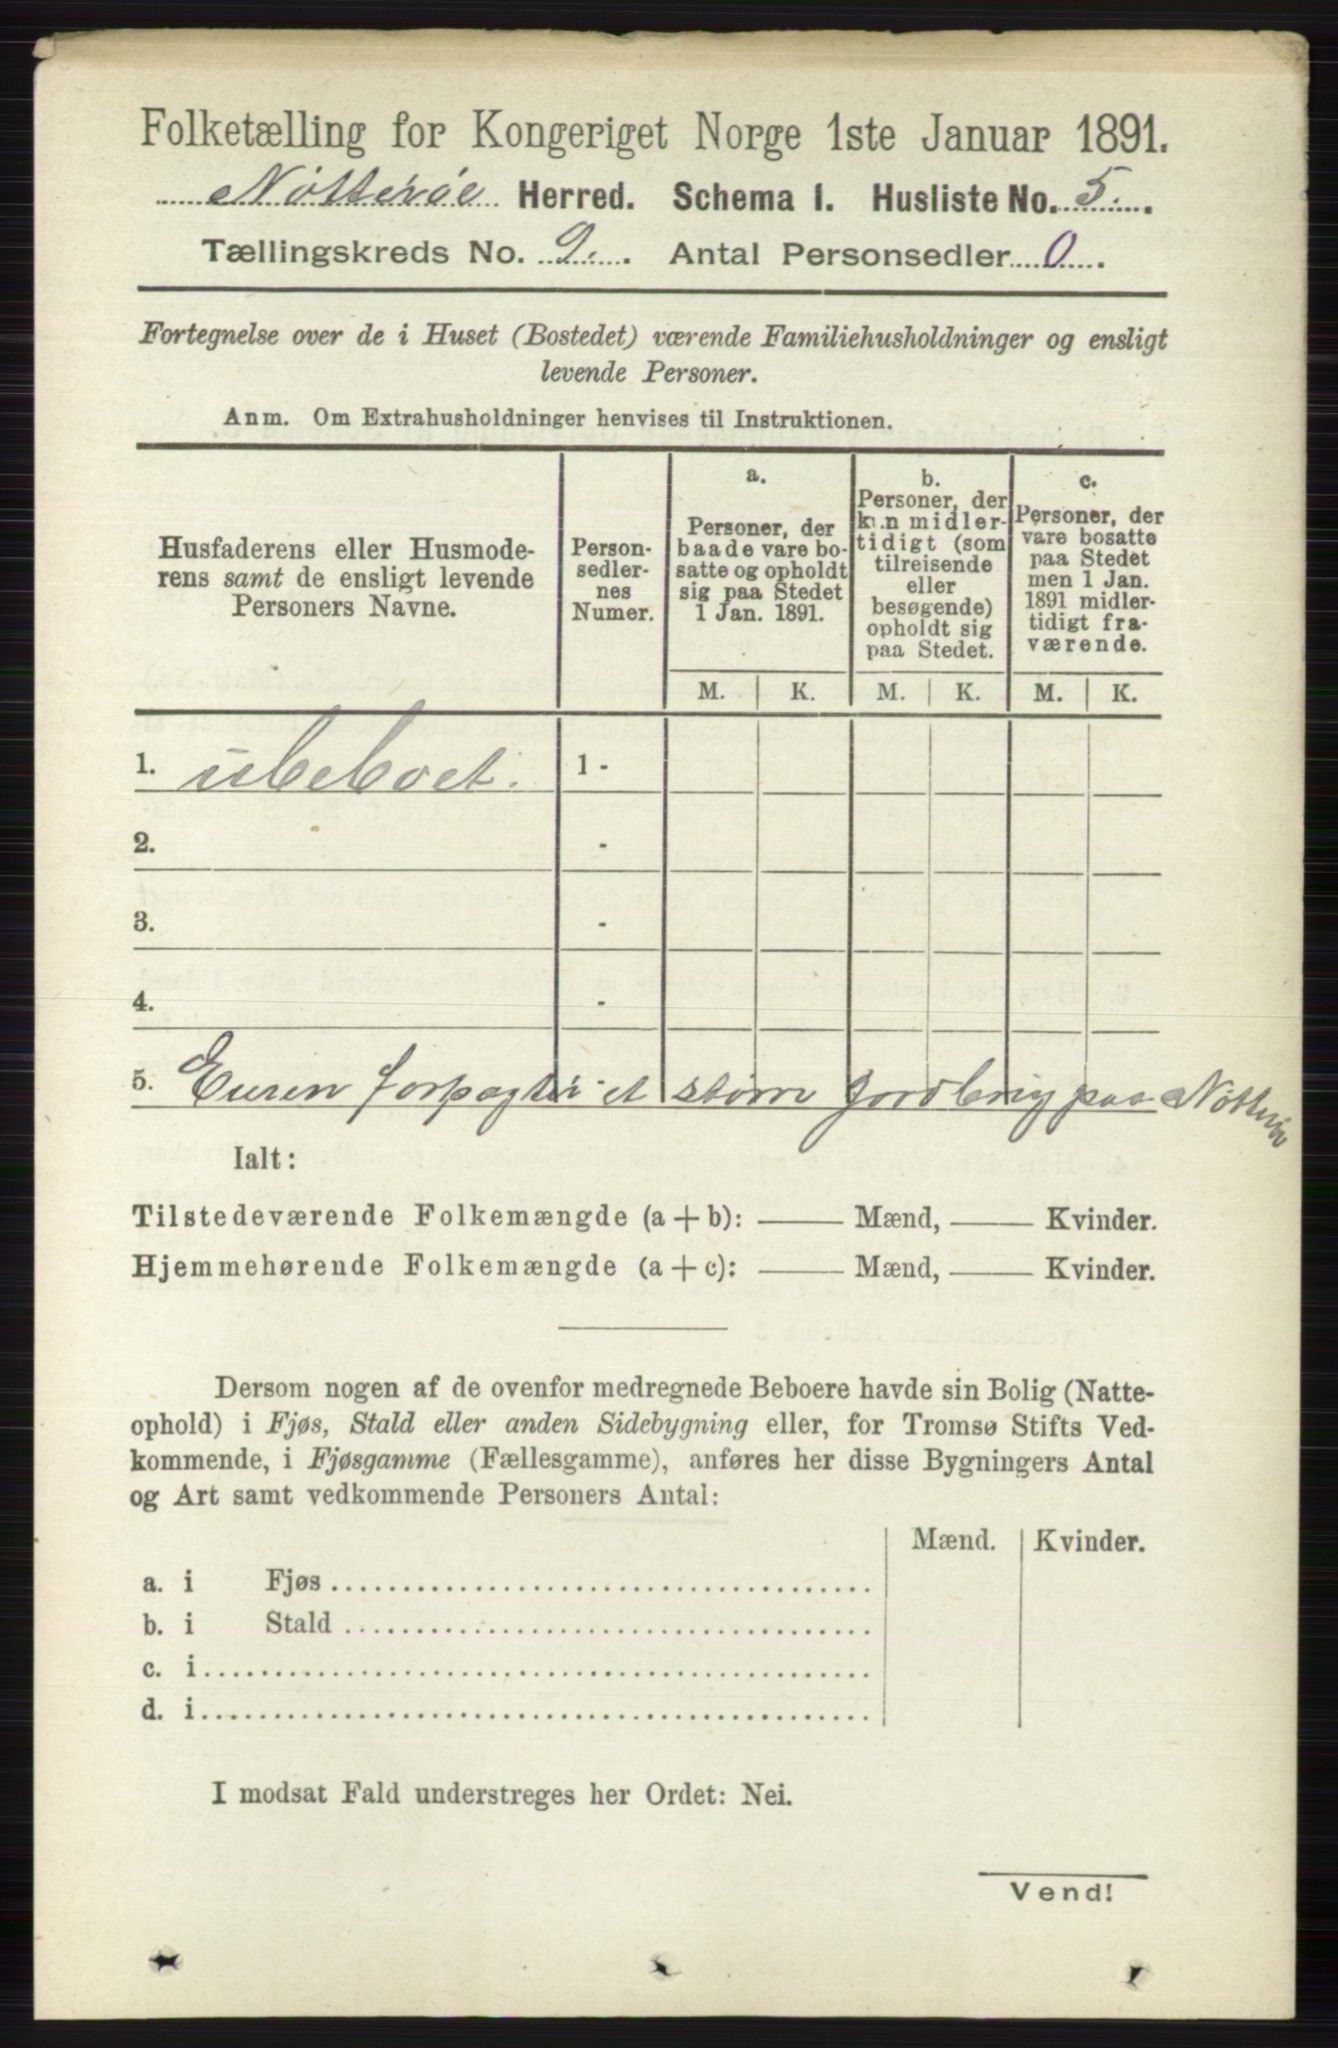 Folketælling for Kongeriget Norge 1ste Januar 1891.
Nötteröe Herred. Schema 1. Husliste No. 5.
Tællingskreds No. 9. Antal Personsedler 0.
Fortegnelse over de i Huset (Bostedet) værende Familiehusholdninger og ensligt
levende Personer.
Anm. Om Extrahusholdninger henvises til Instruktionen.
Husfaderens eller Husmode-
rens samt de ensligt levende
Personers Navne.
Person-
sedler-
nes
Numer.
a.
Personer, der
baade vare bo-
satte og opholdt
sig paa Stedet
1 Jan. 1891.
b.
Personer, der
kun midler-
tidigt (som
tilreisende
eller
besøgende)
opholdt sig
paa Stedet.
c.
Personer, der
vare bosatte
paa Stedet
men 1 Jan.
1891 midler-
tidigt fra-
værende.
M. K. M. K. M. K.
1. ubeboet. 1 -
2. -
3. -
4. -
5. forpagter et større jordbrug paa
Ialt:
Tilstedeværende Folkemængde (a + b): — Mænd, — Kvinder.
Hjemmehørende Folkemængde (a + c): — Mænd, — Kvinder.
Dersom nogen af de ovenfor medregnede Beboere havde sin Bolig (Natte-
ophold) i Fjøs, Stald eller anden Sidebygning eller, for Tromsø Stifts Ved-
kommende, i Fjøsgamme (Fællesgamme), anføres her disse Bygningers Antal
og Art samt vedkommende Personers Antal:
Mænd. Kvinder.
a. i Fjøs
b. i Stald
c. i
d. i
I modsat Fald understreges her Ordet: Nei.
Vend!